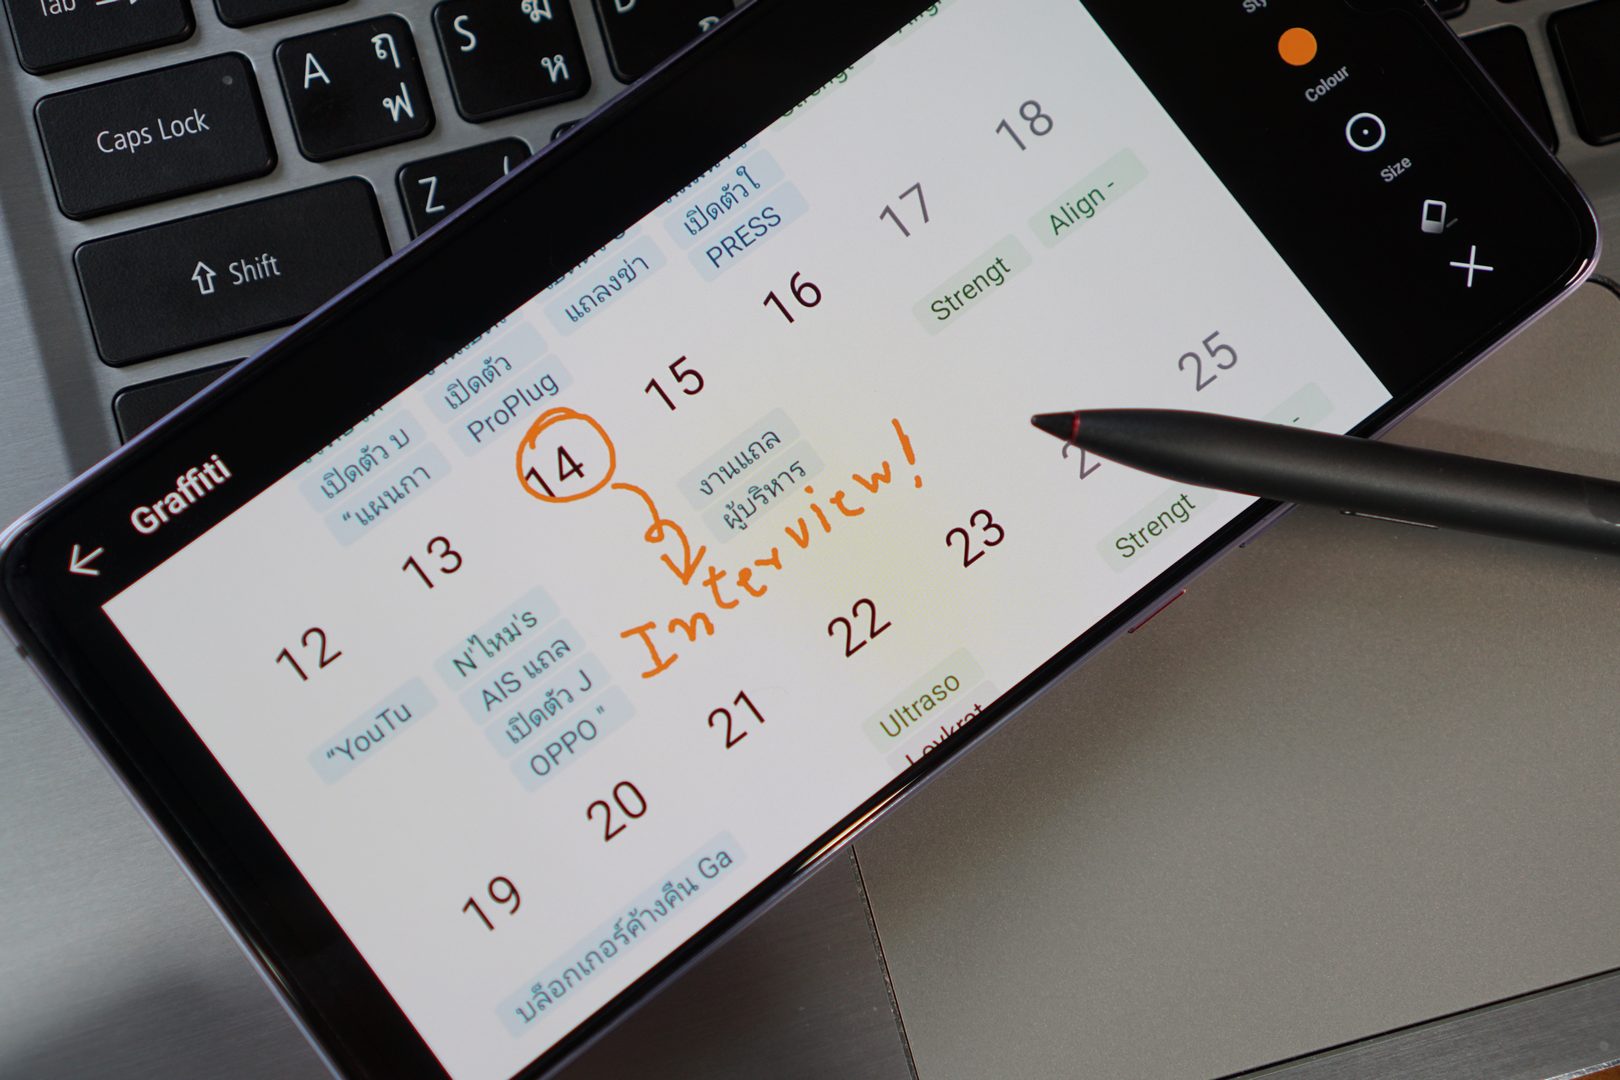 Tab
Caps Lock
A ฤ
ฟ
S ฆ
ห
Z
Shift
Graffiti
Colour
Size
เปิดตัว บ
"แผนกา
เปิดตัว
ProPlug
แถลงข่า
เปิดตัวใ
PRESS
12
13
14
15
16
17
18
"YouTu
N'ไหม่'s
AIS แถล
เปิดตัว J
OPPO "
งานแถล
ผู้บริหาร
Strengt
Align -
Interview!
19
20
21
22
23
25
บล็อกเกอร์ค้างคืน Ga
Ultraso
Strengt